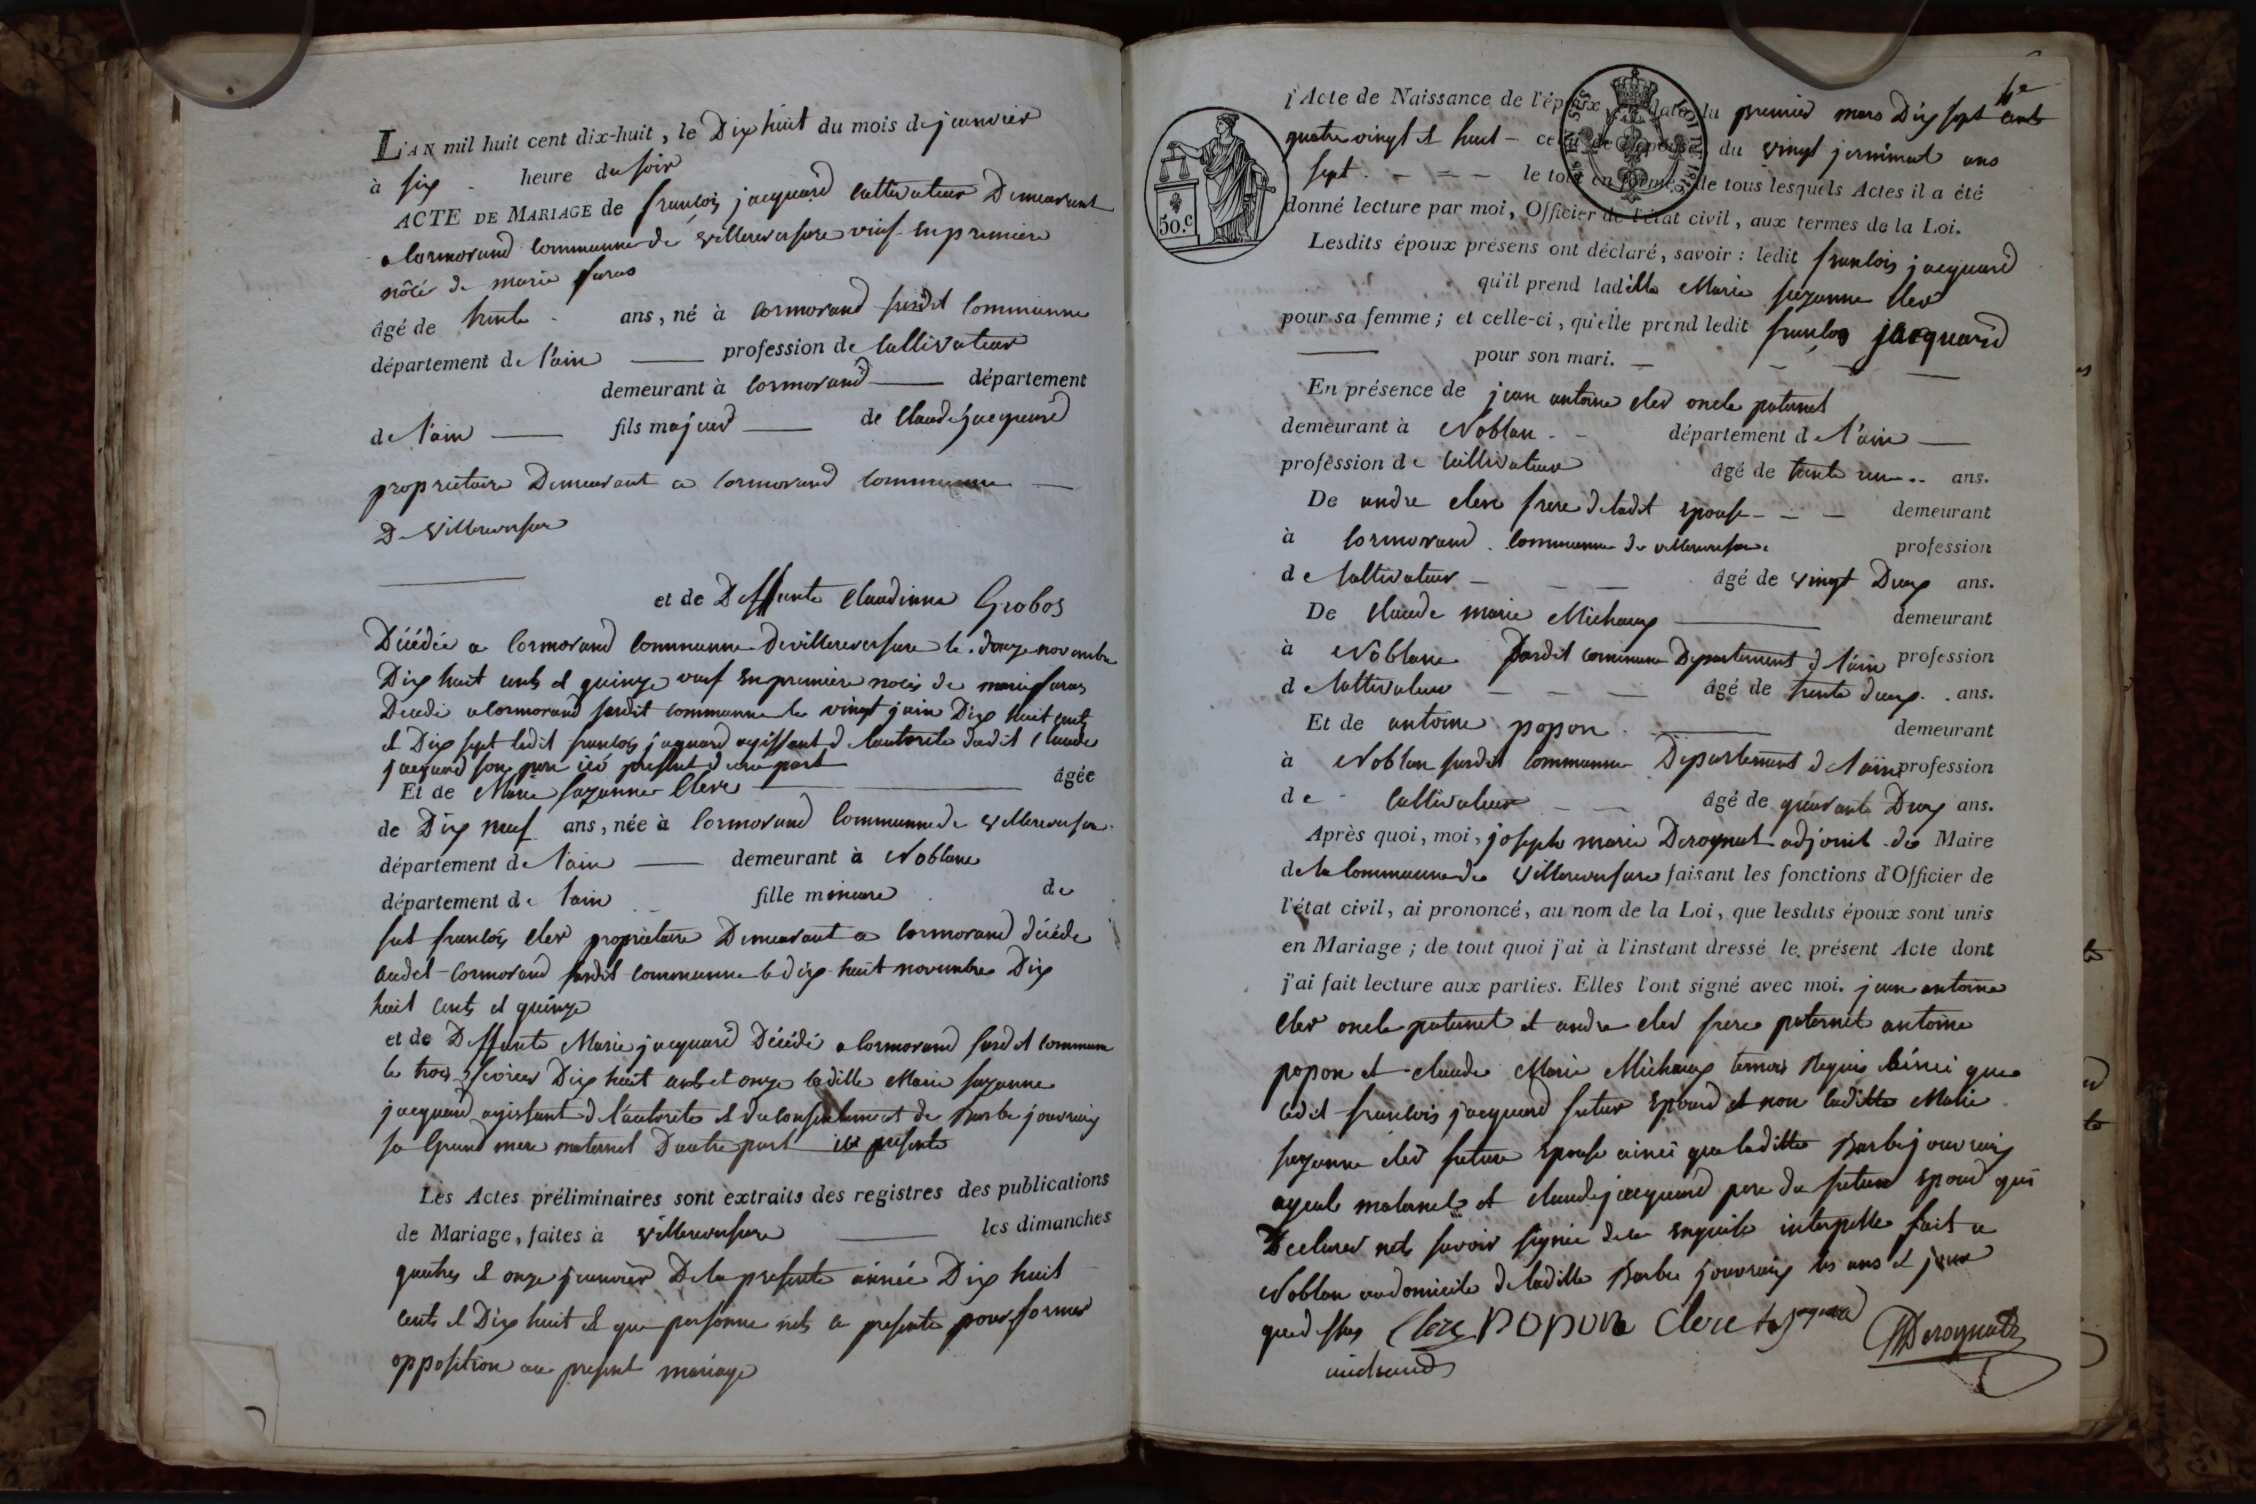 L'AN mil huit cent dix-huit, le Dix huit du mois de janvier
à six heure du soir
ACTE DE MARIAGE de francois jacquard cultivateur Demeurant
a Cormorand Commune de villereversure veuf en premiere
nôces de marie
âgé de trente ans, né à Cormorand susdit Commune
département de l'ain profession de Cultivateur
demeurant à Cormorand département
de l'ain fils majeur de Claude jacquard
proprietaire Demeurant a Cormorand Commune
De villereversure
et de Deffunte Claudinne Grobos
Décédée a Cormorand Commune de villereversure le douze novembre
Dix huit cents et quinze veuf en premiere noces de marie
Décédé a Cormorand susdit commune le vingt juin Dix huit cents
et Dix sept ledit francois jaquard agissant de l'autorité dudit Claude
jacquard son pere ici présent d'une part
Et de Marie suzanne Clerc âgée
de Dix neuf ans, née à Cormorand Commune de villereversure
département de l'ain demeurant à Noblane
département de l'ain fille mineure de
fut francois clerc proprietaire Demeurant a Cormorand décédé
audit Cormorand susdit commune le dix huit novembre Dix
huit cents et quinze
et de Deffunte Marie jacquard Décédé a Cormorand susdit commune
le trois fevrier Dix huit cents et onze laditte Marie suzanne
jacquard agissant de l'autorité et du consentement de Barbe jouvray
sa Grand mere maternel D'autre part ici présente
Les Actes préliminaires sont extraits des registres des publications
de Mariage, faites à villereversure les dimanches
quatres et onze janvier De la presente année Dix huit
cents et Dix huit et que personne nets a presente pour former
opposition au present mariage
6e
l'Acte de Naissance de l'époux, en date du premier mars Dix sept cents
quatre vingt et huit - celui de l'épouse, du vingt jerminal ans
sept le tout en forme; de tous lesquels Actes il a été
donné lecture par moi, Officier de l'état civil, aux termes de la Loi.
50. c
Lesdits époux présens ont déclaré, savoir: ledit francois jacquard
qu'il prend laditte Marie suzanne clerc
pour sa femme; et celle-ci, qu'elle prend ledit francois jacquard
pour son mari.
En présence de jean antoine clerc oncle paternel
demeurant à Noblan département de l'ain
profession de Cultivateur âgé de trente une ans.
De andre clerc frere de ladit epouse demeurant
à Cormorand Commune de villereversure profession
de Cultivateur âgé de vingt Deux ans.
De Claude marie Michaux demeurant
à Noblane susdit commune Departement de l'ain profession
de Cultivateur âgé de trente deux ans.
Et de antoine popon demeurant
à Noblan susdit Commune Departement de l'ain profession
de Cultivateur âgé de quarante Deux ans.
Après quoi, moi, joseph marie Deroynat adjoint de Maire
de la Commune de Villereversure faisant les fonctions d'Officier de
l'état civil, ai prononcé, au nom de la Loi, que lesdits époux sont unis
en Mariage; de tout quoi j'ai à l'instant dressé le présent Acte dont
j'ai fait lecture aux parties. Elles l'ont signé avec moi. jean antoine
clerc oncle paternel et andre clerc frere paternel antoine
popon et claude Marie Michaux temoins requis ainci que
ledit francois jacquard futur epoud et non laditte Marie
suzanne clerc future epouse ainci que laditte Barbe jouvray
ayeule maternel et claude jacquard pere du futur epoud qui
Declarer nets savoir signée de ce enquis interpelle fait a
Noblan au domicile de laditte Barbe jouvray les ans et jour
que dessus Clerc popon Clerc jaquard Deroynat
michaud